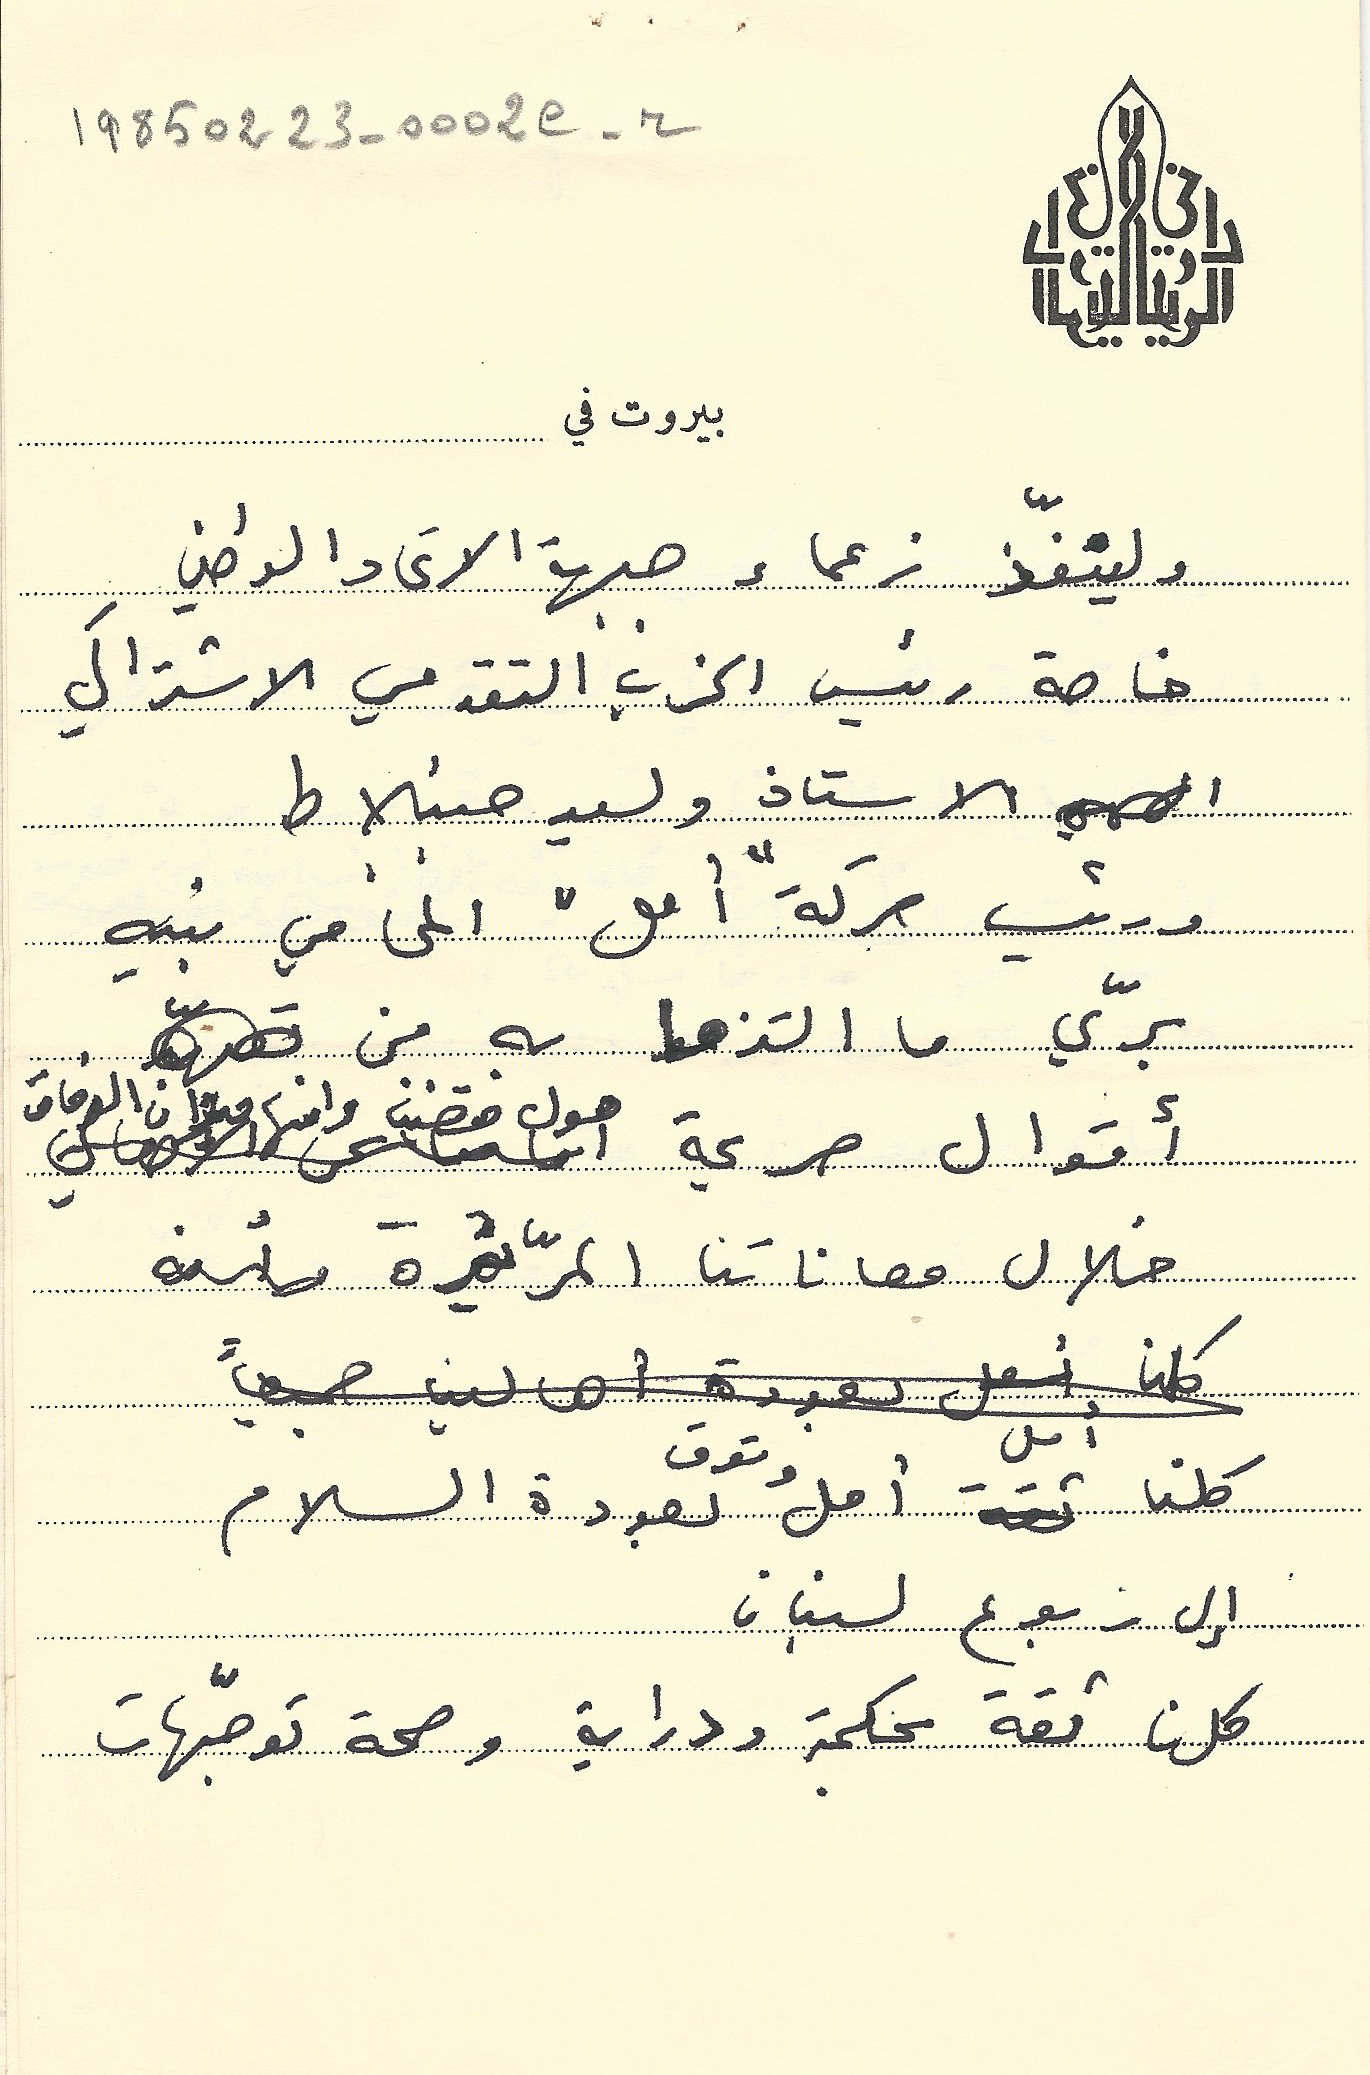 19850223-0002e-r
دار الفتوى
بيروت في
ولينفّذ زعماء جبهة الاتحاد الوطني
خاصة رئيس الحزب التقدمي الاشتراكي
الاستاذ وليد جنبلاط
ورئيس حركة "أمل" المحامي نبيه
برّي ما التزما به من
أقوال صريحة حول قضيتنا وانها الوفاق
خلال معاناتنا المريرة
كلنا أمل بعودة أهالينا جميعاً
كلنا ثقة أمل أمل وتوق لعودة السلام
إلى ربوع لبنان
كلنا ثقة بحكمة ودراية وصحة توجّهات